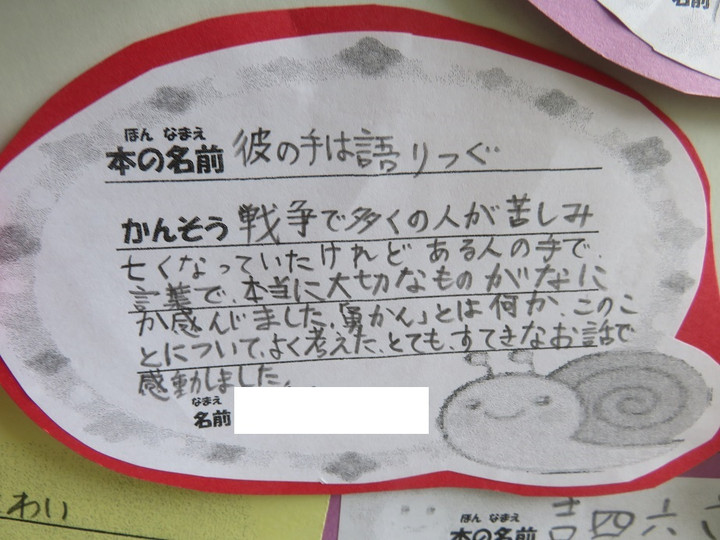 ほん なまえ
本の名前 彼の手は語りつぐ
かんそう 戦争で多くの人が苦しみ
亡くなっていたけれど ある人の手で、
言葉で、本当に大切なものがなに
か感んじました。「勇かん」とは何か、このこ
とについて、よく考えた、とても、すてきなお話で
感動しました。
なまえ
名前
わい
ほん なまえ
本の名前 吉四六